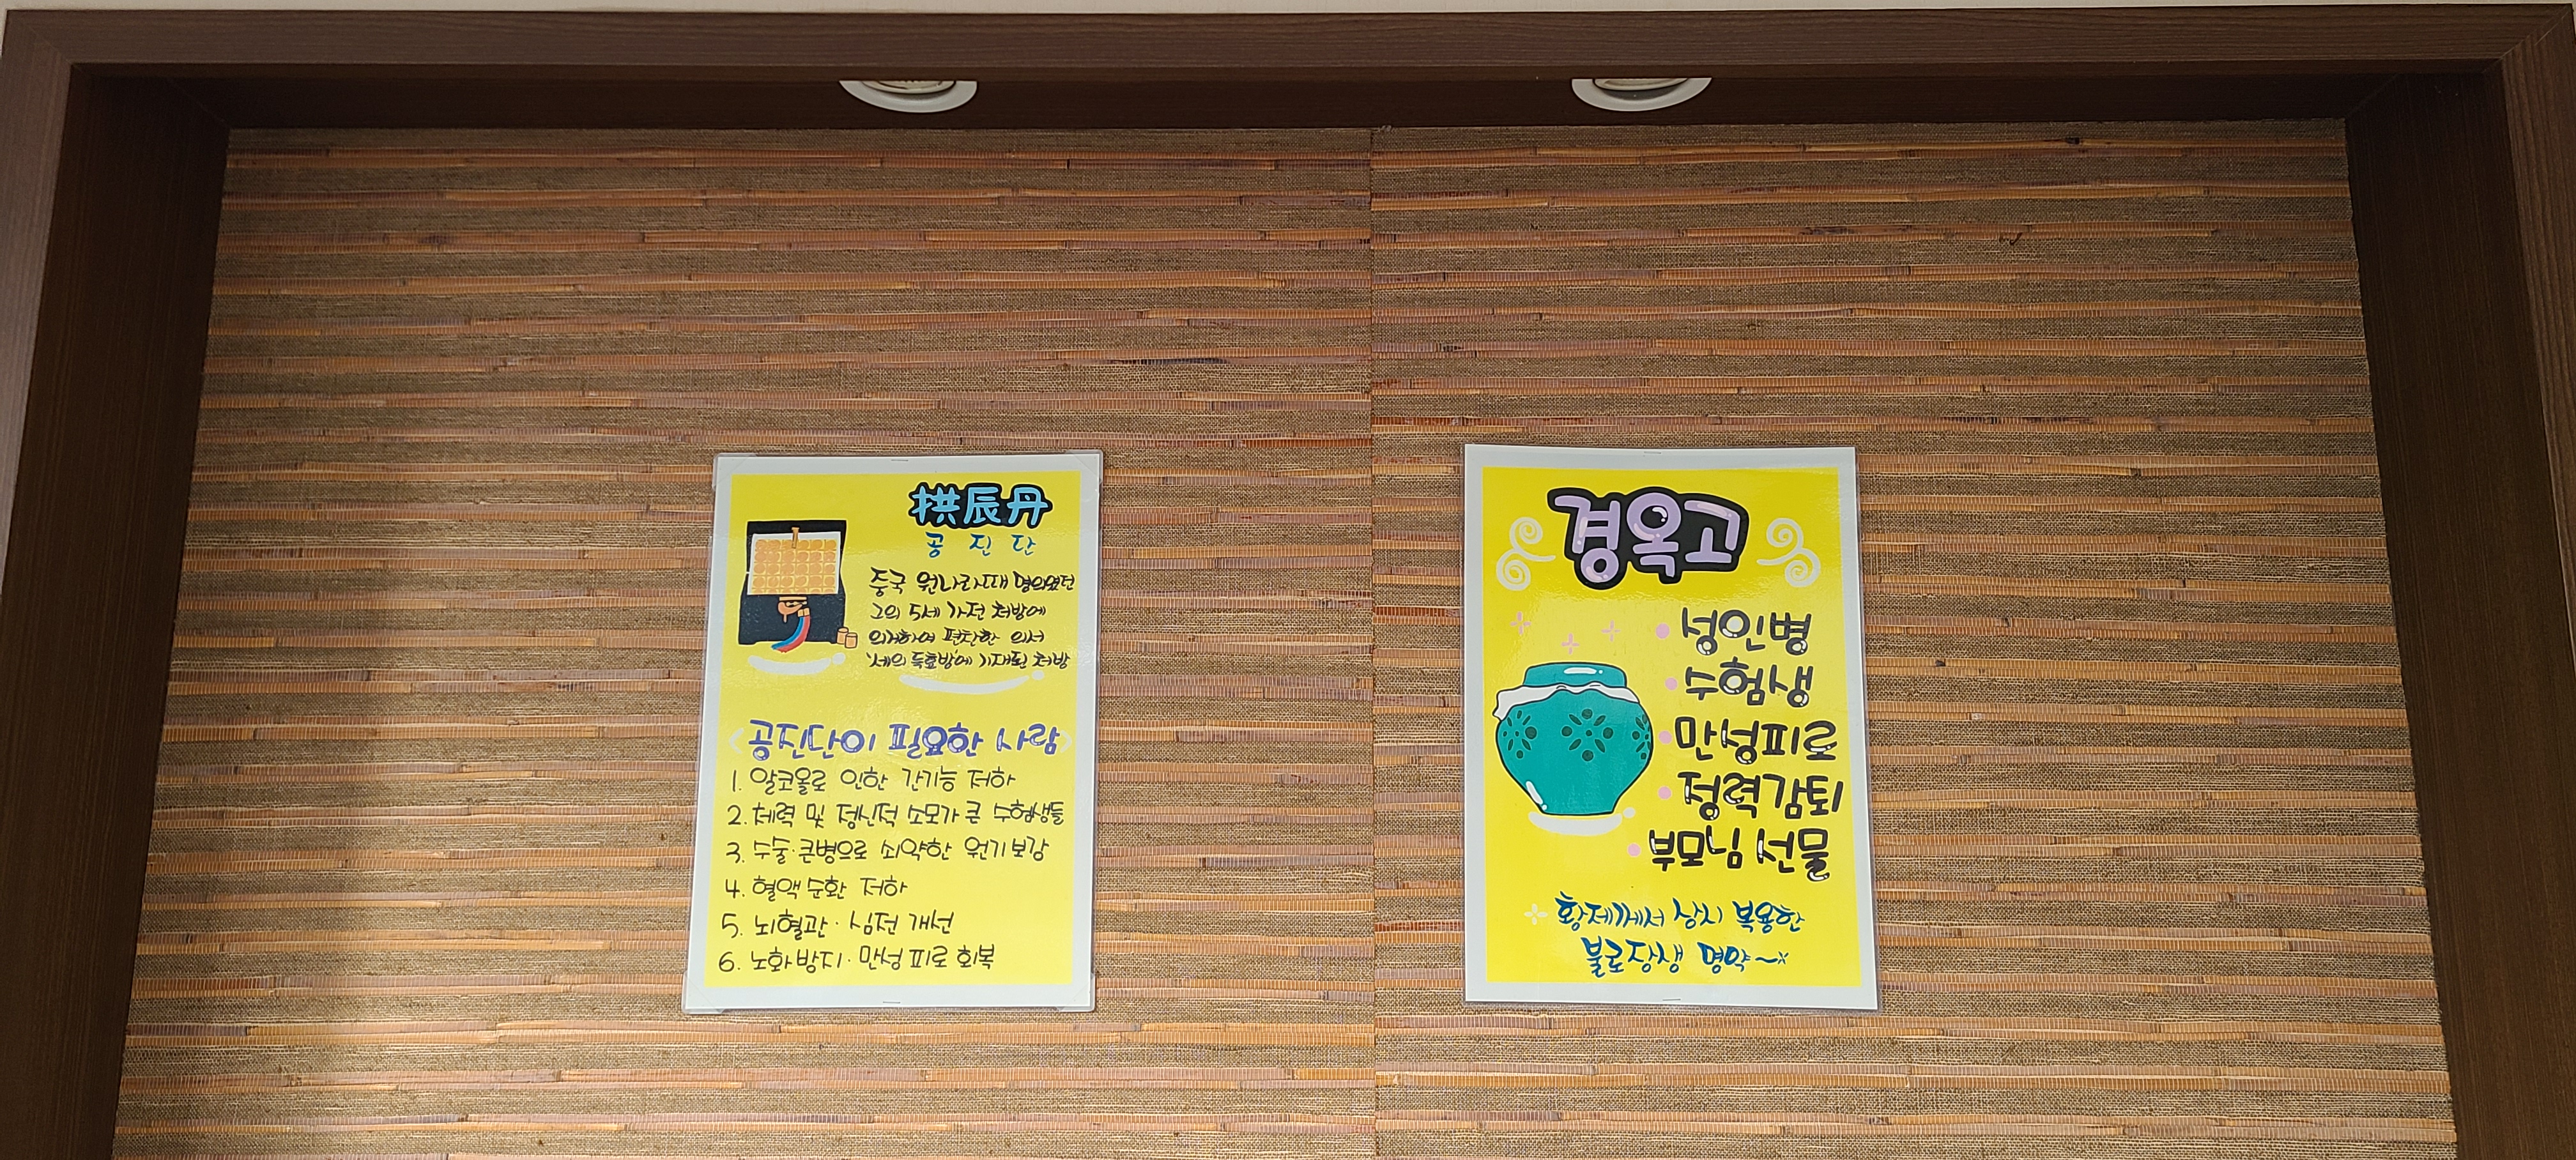 拱辰丹
공진단
중국 원나라때 명의였던
그의 5세 가전 처방에
의거하여 편찬한 의서
'세의 득효방'에 기재된 처방
<공진단이 필요한 사람>
1. 알코올로 인한 간기능 저하
2. 체력 및 정신적 소모가 큰 수험생들
3. 수술·큰병으로 쇠약한 원기보강
4. 혈액 순환 저하
5. 뇌혈관·심전 개선
6. 노화방지·만성 피로 회복
경옥고
• 성인병
• 수험생
• 만성피로
• 정력감퇴
• 부모님 선물
황제께서 상시 복용한
불로장생 명약~